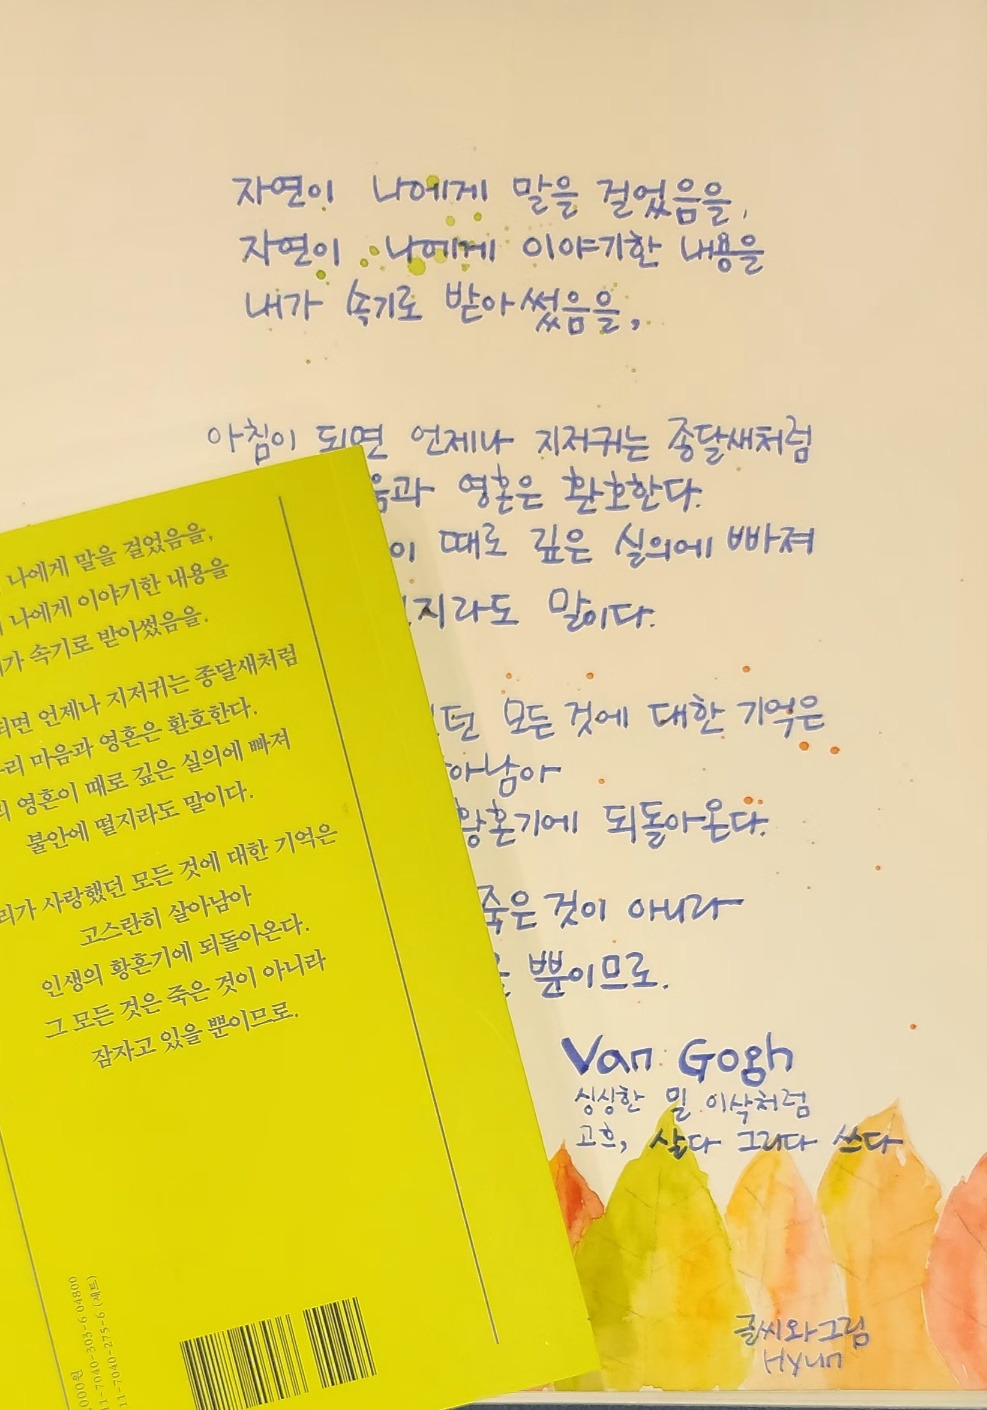 자연이 나에게 말을 걸었음을,
자연이 나에게 이야기한 내용을
내가 속기로 받아썼음을,
아침이 되면 언제나 지저귀는 종달새처럼
영혼은 환호한다.
때로 깊은 실의에 빠져
말이다.
모든 것에 대한 기억은
황혼기에 되돌아온다.
죽은 것이 아니라
뿐이므로.
Van Gogh
싱싱한 밀 이삭처럼
고흐, 살다 그리다 쓰다
글씨와그림
Hyun
나에게 말을 걸었음을,
나에게 이야기한 내용을
속기로 받아썼음을.
언제나 지저귀는 종달새처럼
마음과 영혼은 환호한다.
영혼이 때로 깊은 실의에 빠져
불안에 떨지라도 말이다.
사랑했던 모든 것에 대한 기억은
고스란히 살아남아
인생의 황혼기에 되돌아온다.
그 모든 것은 죽은 것이 아니라
잠자고 있을 뿐이므로.